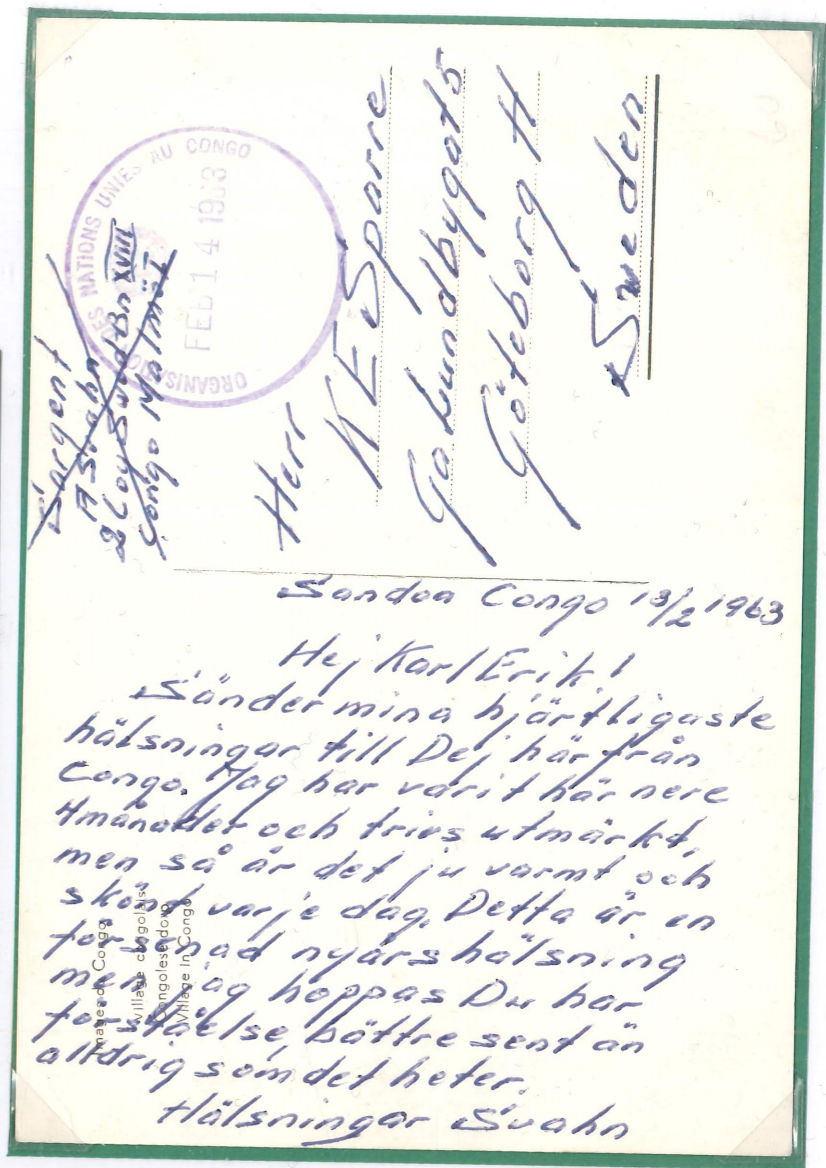 Sargent
A Svahn
2 Coy Swed Bn XVIII
Congo Malmö 1
ORGANISATION DES NATIONS UNIES AU CONGO
FEB 14 1963
Herr
K E Sparre
Ga Lundbygat 5
Göteborg H
Sweden
Sandoa Congo 13/2 1963
Hej Karl Erik!
Sänder mina hjärtligaste
hälsningar till Dej här från
Congo. Jag har varit här nere
4månader och trivs utmärkt,
men så är det ju varmt och
skönt varje dag. Detta är en
försenad nyårshälsning
men jag hoppas Du har
förståelse, bättre sent än
alldrig som det heter.
Hälsningar Svahn
Images du Congo
Village congolais
Congolese dorp
Village in Congo